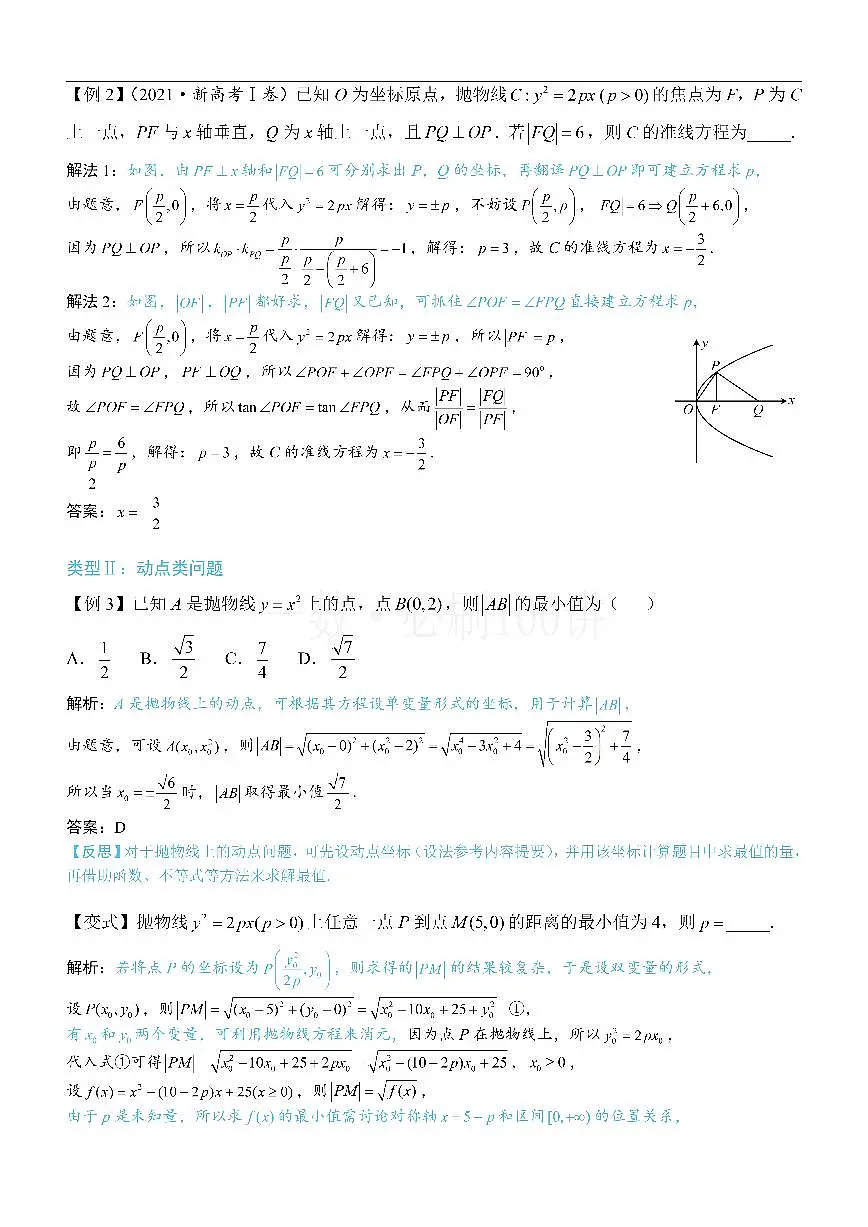 【例2】（2021·新高考Ⅰ卷）已知O为坐标原点，抛物线C：y²＝2px（p＞0）的焦点为F，P为C
上一点，PF与x轴垂直，Q为x轴上一点，且PQ⊥OP．若|FQ|＝6，则C的准线方程为_____．
解法1：如图，由PF⊥x轴和|FQ|＝6可分别求出P，Q的坐标，再翻译PQ⊥OP即可建立方程求p，
由题意，F(p/2,0)，将x＝p/2代入y²＝2px解得：y＝±p，不妨设P(p/2,p)，|FQ|＝6⇒Q(p/2+6,0)，
因为PQ⊥OP，所以k_OP·k_PQ＝p/(p/2)·p/(p/2−(p/2+6))＝−1，解得：p＝3，故C的准线方程为x＝−3/2．
解法2：如图，|OF|，|PF|都好求，|FQ|又已知，可抓住∠POF＝∠FPQ直接建立方程求p，
由题意，F(p/2,0)，将x＝p/2代入y²＝2px解得：y＝±p，所以|PF|＝p，
因为PQ⊥OP，PF⊥OQ，所以∠POF＋∠OPF＝∠FPQ＋∠OPF＝90°，
故∠POF＝∠FPQ，所以tan∠POF＝tan∠FPQ，从而|PF|/|OF|＝|FQ|/|PF|，
即p/(p/2)＝6/p，解得：p＝3，故C的准线方程为x＝−3/2．
y
P
O F Q x
答案：x＝ 3/2
类型Ⅱ：动点类问题
【例3】已知A是抛物线y＝x²上的点，点B(0,2)，则|AB|的最小值为（ ）
A．1/2 B．√3/2 C．7/4 D．√7/2
解析：A是抛物线上的动点，可根据其方程设单变量形式的坐标，用于计算|AB|，
由题意，可设A(x₀,x₀²)，则|AB|＝√((x₀−0)²+(x₀²−2)²)＝√(x₀⁴−3x₀²+4)＝√((x₀²−3/2)²+7/4)，
所以当x₀＝±√6/2时，|AB|取得最小值√7/2．
答案：D
【反思】对于抛物线上的动点问题，可先设动点坐标（设法参考内容提要），并用该坐标计算题目中求最值的量，
再借助函数、不等式等方法来求解最值．
【变式】抛物线y²＝2px(p＞0)上任意一点P到点M(5,0)的距离的最小值为4，则p＝_____．
解析：若将点P的坐标设为P(y₀²/2p,y₀)，则求得的|PM|的结果较复杂，于是设双变量的形式，
设P(x₀,y₀)，则|PM|＝√((x₀−5)²+(y₀−0)²)＝√(x₀²−10x₀+25+y₀²) ①，
有x₀和y₀两个变量，可利用抛物线方程来消元，因为点P在抛物线上，所以y₀²＝2px₀，
代入式①可得|PM| √(x₀²−10x₀+25+2px₀) √(x₀²−(10−2p)x₀+25)，x₀≥0，
设f(x)＝x²−(10−2p)x+25(x≥0)，则|PM|＝√f(x)，
由于p是未知量，所以求f(x)的最小值需讨论对称轴x＝5−p和区间[0,+∞)的位置关系，